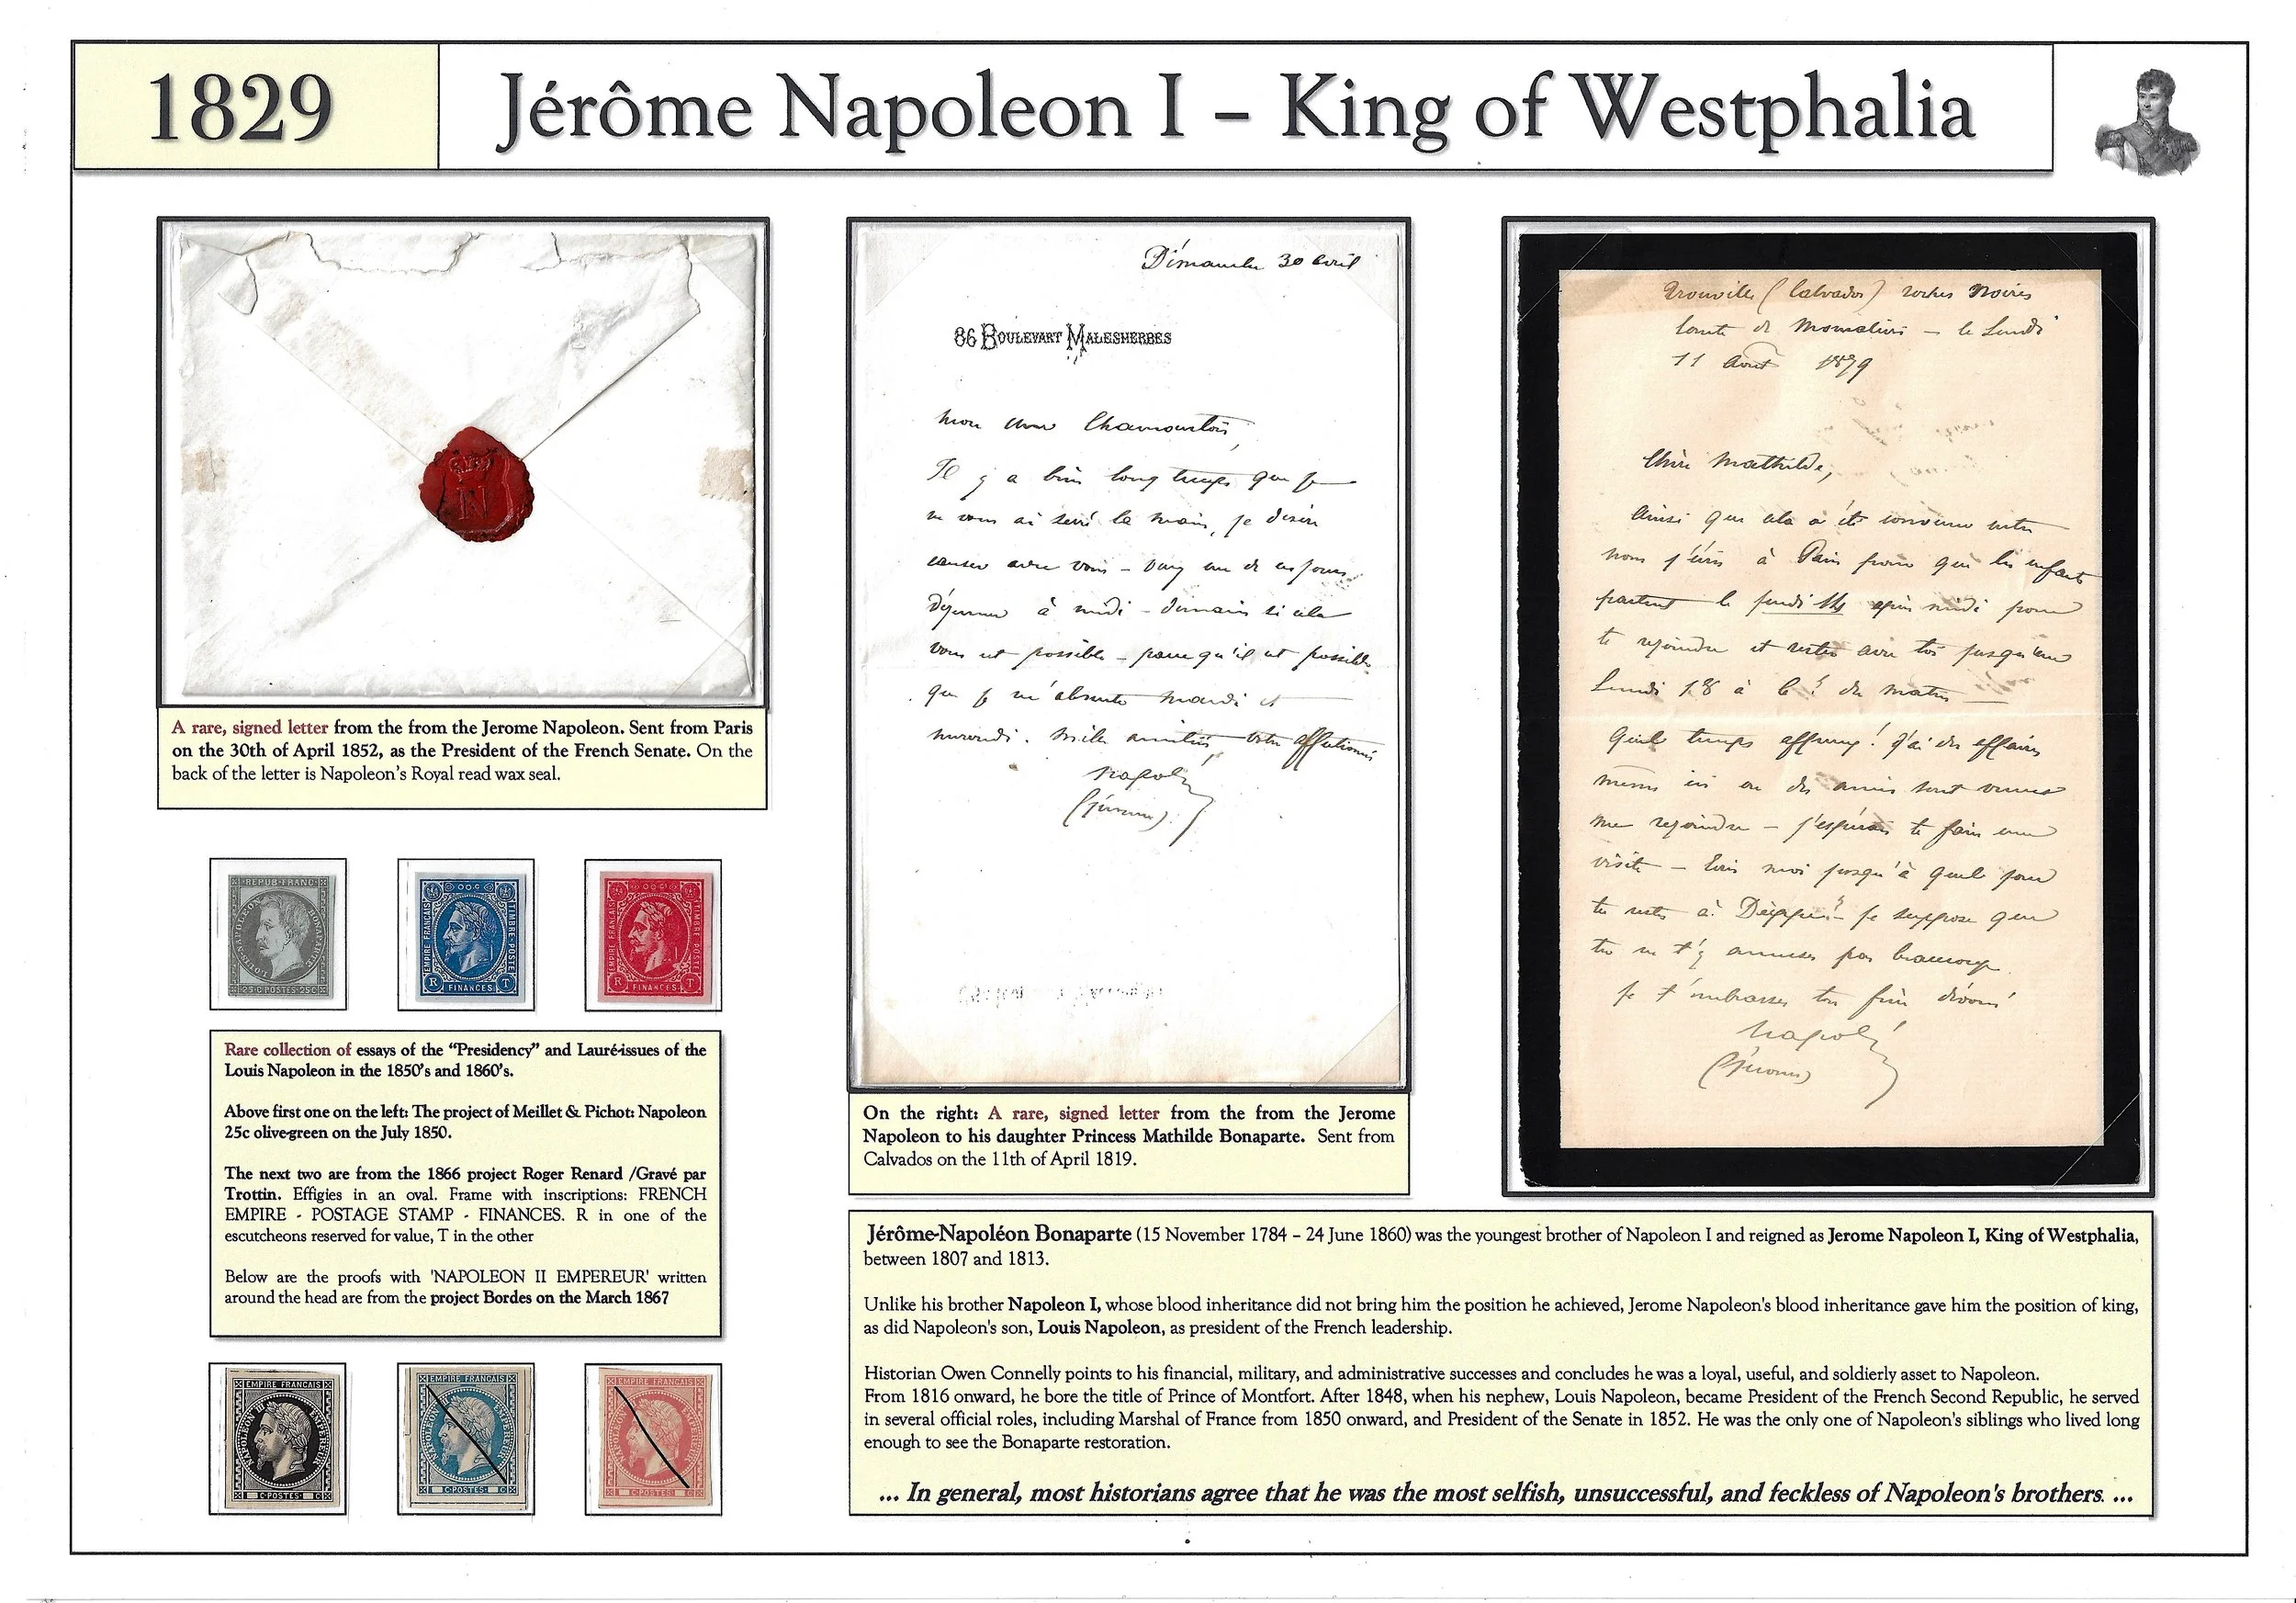 1829
Jérôme Napoleon I – King of Westphalia
N
A rare, signed letter from the from the Jerome Napoleon. Sent from Paris
on the 30th of April 1852, as the President of the French Senate. On the
back of the letter is Napoleon's Royal read wax seal.
REPUB-FRANC
LOUIS-NAPOLEON BONAPARTE
25·C·POSTES·25C
EMPIRE FRANÇAIS
TIMBRE POSTE
R FINANCES T
EMPIRE FRANÇAIS
TIMBRE POSTE
R FINANCES T
Rare collection of essays of the “Presidency” and Lauré-issues of the
Louis Napoleon in the 1850's and 1860's.
Above first one on the left: The project of Meillet & Pichot: Napoleon
25c olive-green on the July 1850.
The next two are from the 1866 project Roger Renard /Gravé par
Trottin. Effigies in an oval. Frame with inscriptions: FRENCH
EMPIRE - POSTAGE STAMP - FINANCES. R in one of the
escutcheons reserved for value, T in the other
Below are the proofs with 'NAPOLEON II EMPEREUR' written
around the head are from the project Bordes on the March 1867
EMPIRE FRANÇAIS
NAPOLEON III EMPEREUR
C·POSTES· C
EMPIRE FRANCAIS
NAPOLEON EMPEREUR
C·POSTES· C
EMPIRE FRANÇAIS
NAPOLEON III EMPEREUR
C·POSTES· C
Dimanche 30 avril
86 BOULEVART MALESHERBES
Mon cher
Il y a bien long temps que je
ne vous ai serré la main, je désire
causer avec vous – un de ces jours
déjeuner à midi – demain si cela
vous est possible – parce qu'il est possible
que je m'absente mardi et
mercredi. Mille amitiés, votre affectionné
Napoléon
(Jérôme)
On the right: A rare, signed letter from the from the Jerome
Napoleon to his daughter Princess Mathilde Bonaparte. Sent from
Calvados on the 11th of April 1819.
Trouville (Calvados) roches noires
Comte de Moncalieri – le Lundi
11 Aout 1879
Chère Mathilde,
Ainsi que cela a été convenu entre
nous j'écris à Paris pour que les enfants
partent le jeudi 14 après midi pour
te rejoindre et rester avec toi jusqu'au
Lundi 18 à 6 h du matin
Quel temps affreux! J'ai des affaires
même ici où des amis sont venus
me rejoindre – j'espérais te faire une
visite – Ecris moi jusqu'à quel jour
tu restes à Dieppe? – je suppose que
tu ne t'y amuses pas beaucoup.
Je t'embrasse ton frère dévoué
Napoléon
(Jérôme)
Jérôme-Napoléon Bonaparte (15 November 1784 – 24 June 1860) was the youngest brother of Napoleon I and reigned as Jerome Napoleon I, King of Westphalia,
between 1807 and 1813.
Unlike his brother Napoleon I, whose blood inheritance did not bring him the position he achieved, Jerome Napoleon's blood inheritance gave him the position of king,
as did Napoleon's son, Louis Napoleon, as president of the French leadership.
Historian Owen Connelly points to his financial, military, and administrative successes and concludes he was a loyal, useful, and soldierly asset to Napoleon.
From 1816 onward, he bore the title of Prince of Montfort. After 1848, when his nephew, Louis Napoleon, became President of the French Second Republic, he served
in several official roles, including Marshal of France from 1850 onward, and President of the Senate in 1852. He was the only one of Napoleon's siblings who lived long
enough to see the Bonaparte restoration.
... In general, most historians agree that he was the most selfish, unsuccessful, and feckless of Napoleon's brothers. ...